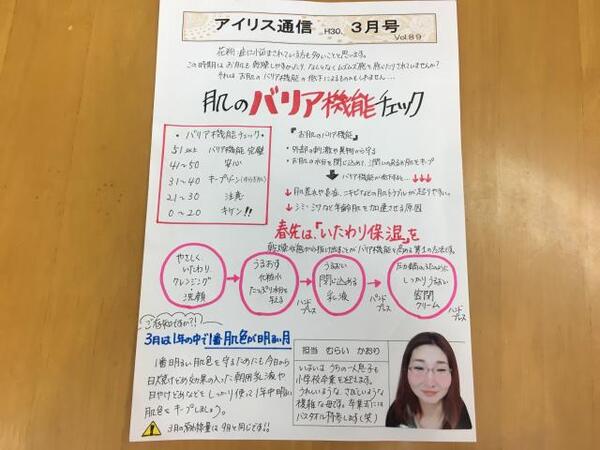 アイリス通信 H30. 3月号
Vol.89
花粉症に悩まされている方も多いことと思います。
この時期はお肌も乾燥しやすかったり、なんとなくムズムズ痒さを感じたりされていませんか?
それは お肌のバリア機能の低下によるものかもしれません…
肌のバリア機能チェック
・バリア機能チェック・
51以上 バリア機能完璧
41〜50 安心
31〜40 キープゾーン
21〜30 注意
0〜20 キケン!!
『お肌のバリア機能』
・外部の刺激や異物から守る
・お肌の水分を閉じ込めて、潤いのあるお肌をキープ
バリア機能が低下すると…
↓肌荒れや赤み、ニキビなどの肌トラブルが起りやすい。
↓シミ・シワなど年齢肌を加速させる原因
春先は「いたわり保湿」を
乾燥状態から抜け出すことがバリア機能を高める第1の方法です。
やさしく、
いたわり
クレンジング
・洗顔
うるおす
化粧水
たっぷり水分を
与える
ハンド
プレス
うるおい
閉じ込める
乳液
ハンド
プレス
しっかりうるおい
密閉
クリーム
ハンド
プレス
ご存知ですか?!
3月は1年の中で1番肌色が明るい月
1番明るい肌色を守るためにも今日から
日焼け止め効果の入った朝用乳液や
日やけどめなどをしっかり使って1年中明るい
肌色をキープしましょう。
3月の紫外線量は9月と同じです!!
担当 むらい かおり
いよいよ、うちの一人息子も
小学校卒業を迎えます。
うれしいような、さびしいような
複雑な母です。卒業式には
バスタオル持参します(笑)